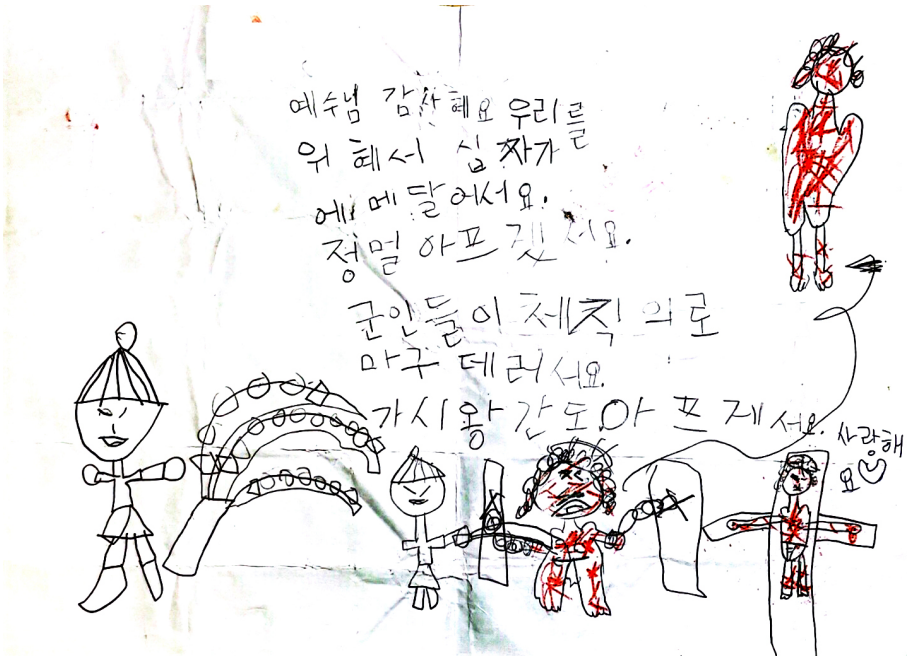 예수님 감산혜요 우리를
위 혜서 십자가
에 메달어서요.
정멀 아프겠서요.
군인들이 체직 의로
마구 데러서요.
가시왕 간도 아프게서요.
사랑해
요